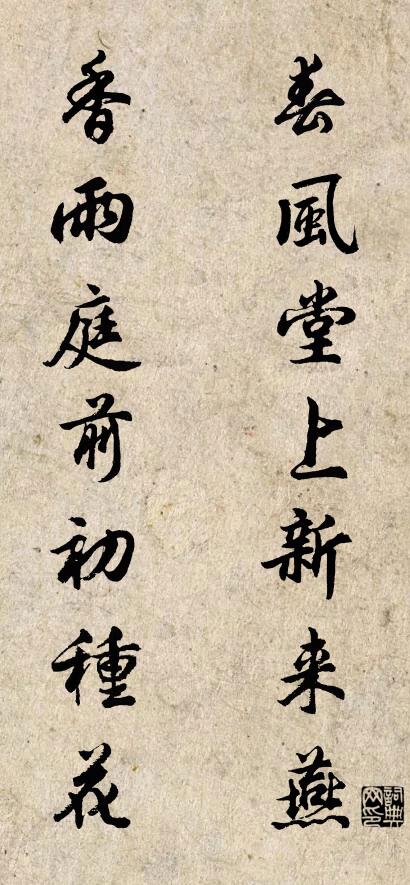 春風堂上新来燕
香雨庭前初種花
詞典网印